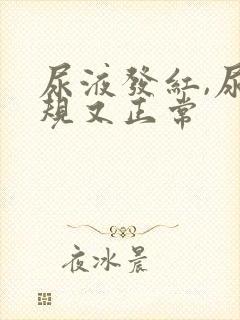 尿液發紅,尿
規又正常
夜冰晨